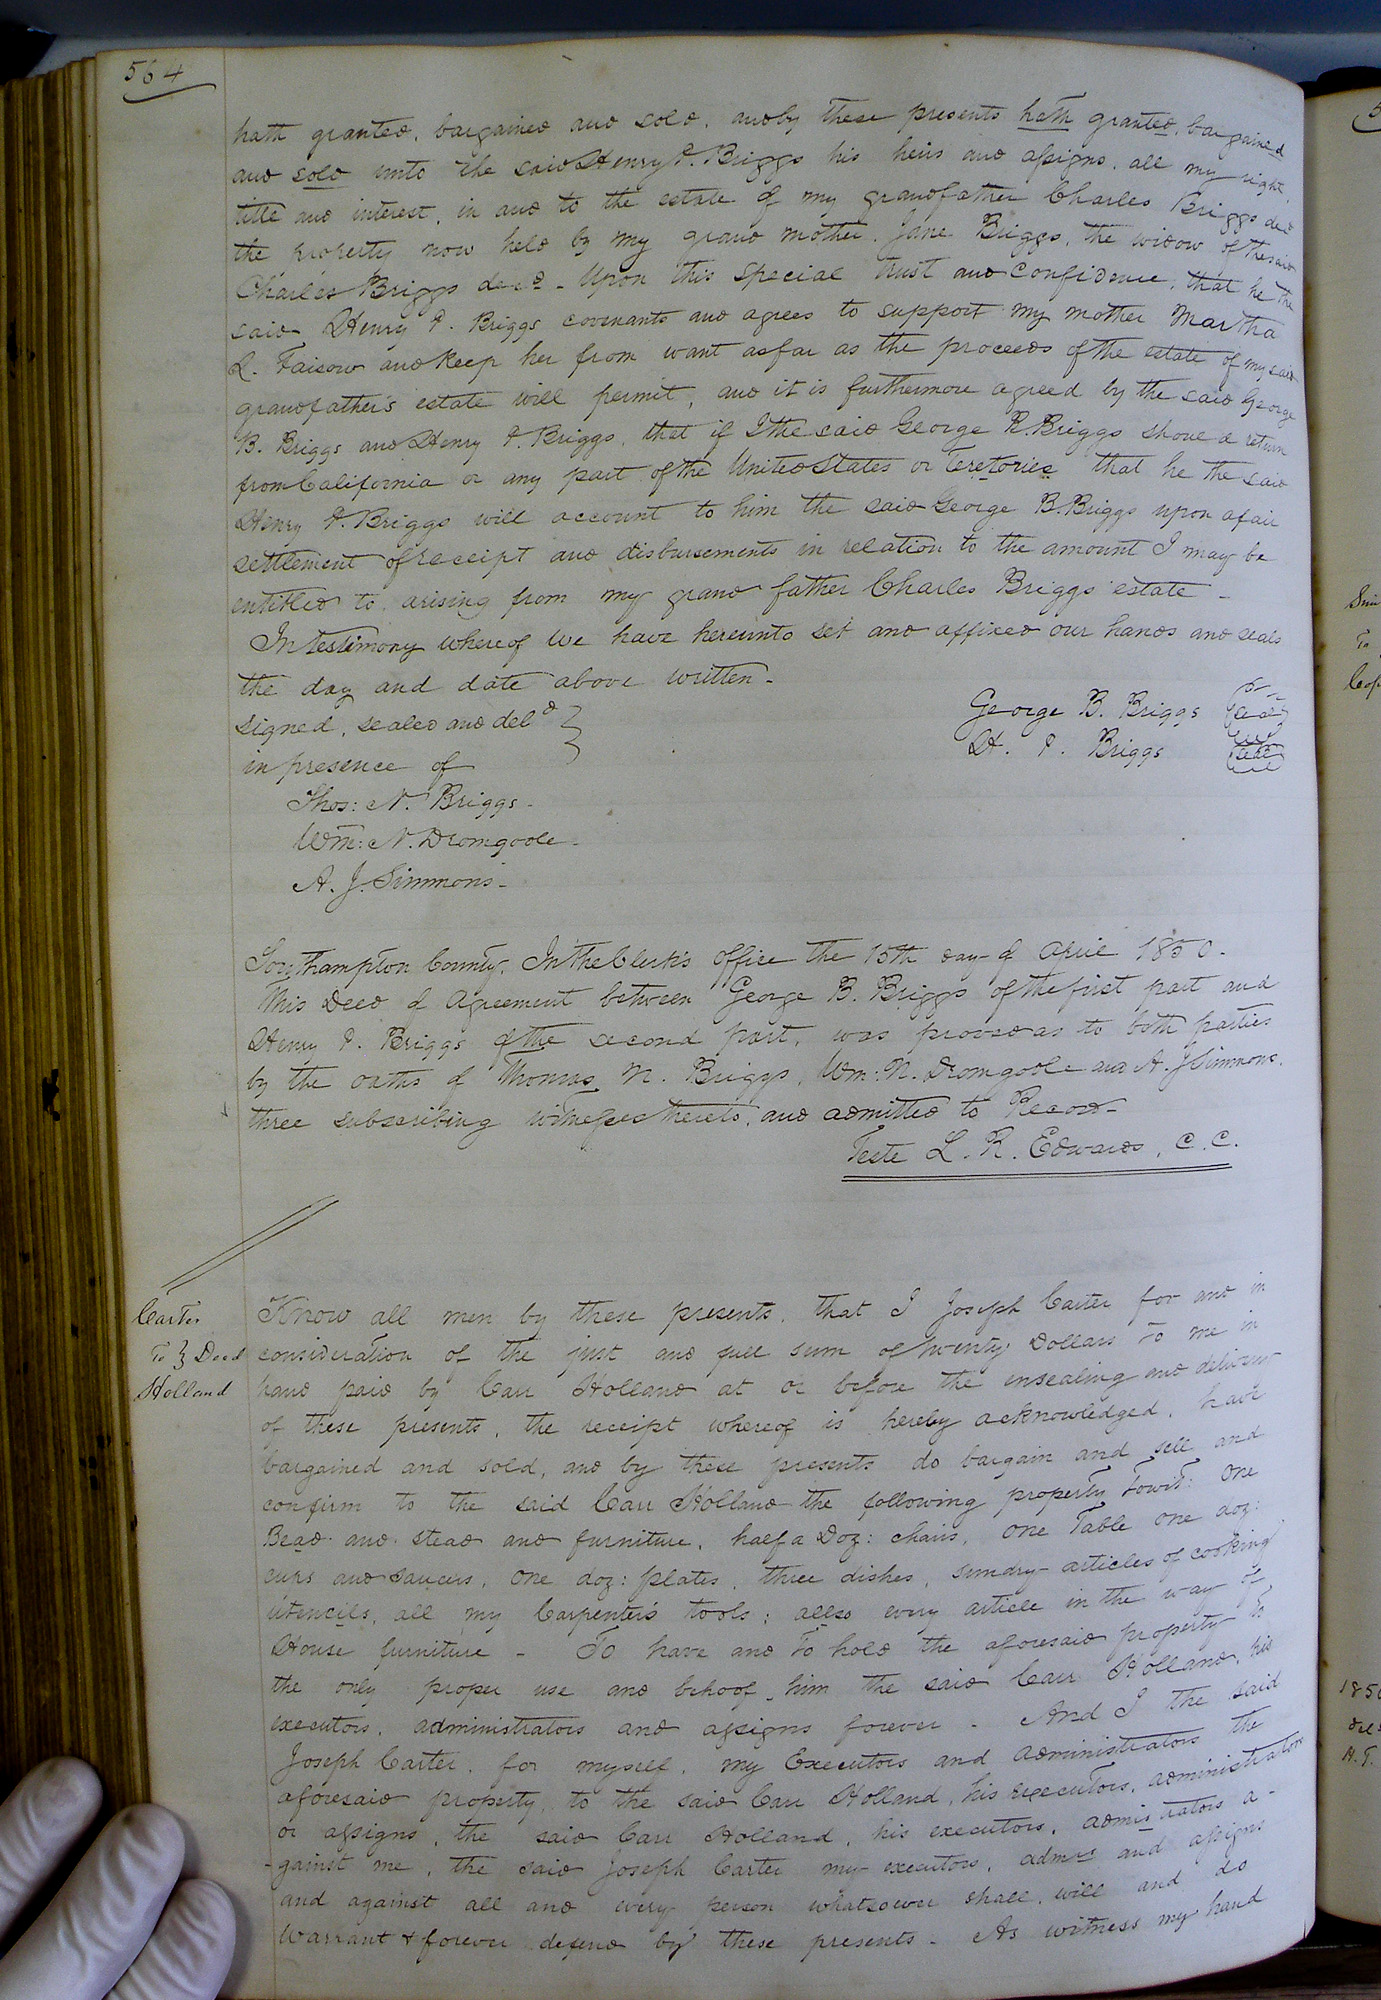 564
hath granted, bargained and sold, and by these presents hath granted, bargained
and sold unto the said Henry P. Briggs his heirs and assigns, all my right,
title and interest, in and to the estate of my grandfather Charles Briggs decd
the property now held by my grand mother, Jane Briggs, the widow of the said
Charles Briggs decd - Upon this special trust and confidence, that he the
said Henry P. Briggs covenants and agrees to support my mother Martha
L. Faison and keep her from want as far as the proceeds of the estate of my said
grandfather's estate will permit, and it is furthermore agreed by the said George
B. Briggs and Henry P. Briggs, that if I the said George R. Briggs should return
from California or any part of the United States or Teretories that he the said
Henry P. Briggs will account to him the said George B. Briggs upon a fair
settlement of receipt and disbursements in relation to the amount I may be
entitled to arising from my grand father Charles Briggs estate -
In testimony whereof we have hereunto set and affixed our hands and seals
the day and date above written -
signed, sealed and deld }
in presence of
George B. Briggs seal
H. P. Briggs seal
Thos: N. Briggs -
Wm: N. Dromgoole -
A. J. Simmons -
Southampton County, In the Clerk's office the 15th day of April 1850 -
This Deed of Agreement between George B. Briggs of the first part and
Henry P. Briggs of the second part, was proved as to both parties
by the oaths of Thomas N. Briggs, Wm: N. Dromgoole and A. J Simmons,
three subscribing witnesses thereto, and admitted to Record -
Teste L. R. Edwards, C. C.
Carter
To } Deed
Holland
Know all men by these presents, that I Joseph Carter for and in
consideration of the just and full sum of twenty Dollars to me in
hand paid by Carr Holland at or before the ensealing and delivery
of these presents, the receipt whereof is hereby acknowledged, have
bargained and sold, and by these presents do bargain and sell and
confirm to the said Carr Holland the following property Towit: One
Bead and stead and furniture, half a Doz: chairs, one Table one doz:
cups and saucers, one doz: plates, three dishes, sundry articles of cooking
utencils, all my Carpenter's tools; allso every article in the way of
House furniture - To have and to hold the aforesaid property to
the only proper use and behoof, him the said Carr Holland, his
executors, administrators and assigns forever - And I the said
Joseph Carter, for myself, my Executors and administrators the
aforesaid property, to the said Carr Holland, his executors, administrators
or assigns, the said Carr Holland, his executors, administrators a-
-gainst me, the said Joseph Carter my executors, admrs and assigns
and against all and every person whatsoever shall, will and do
Warrant & forever defend by these presents - As witness my hand